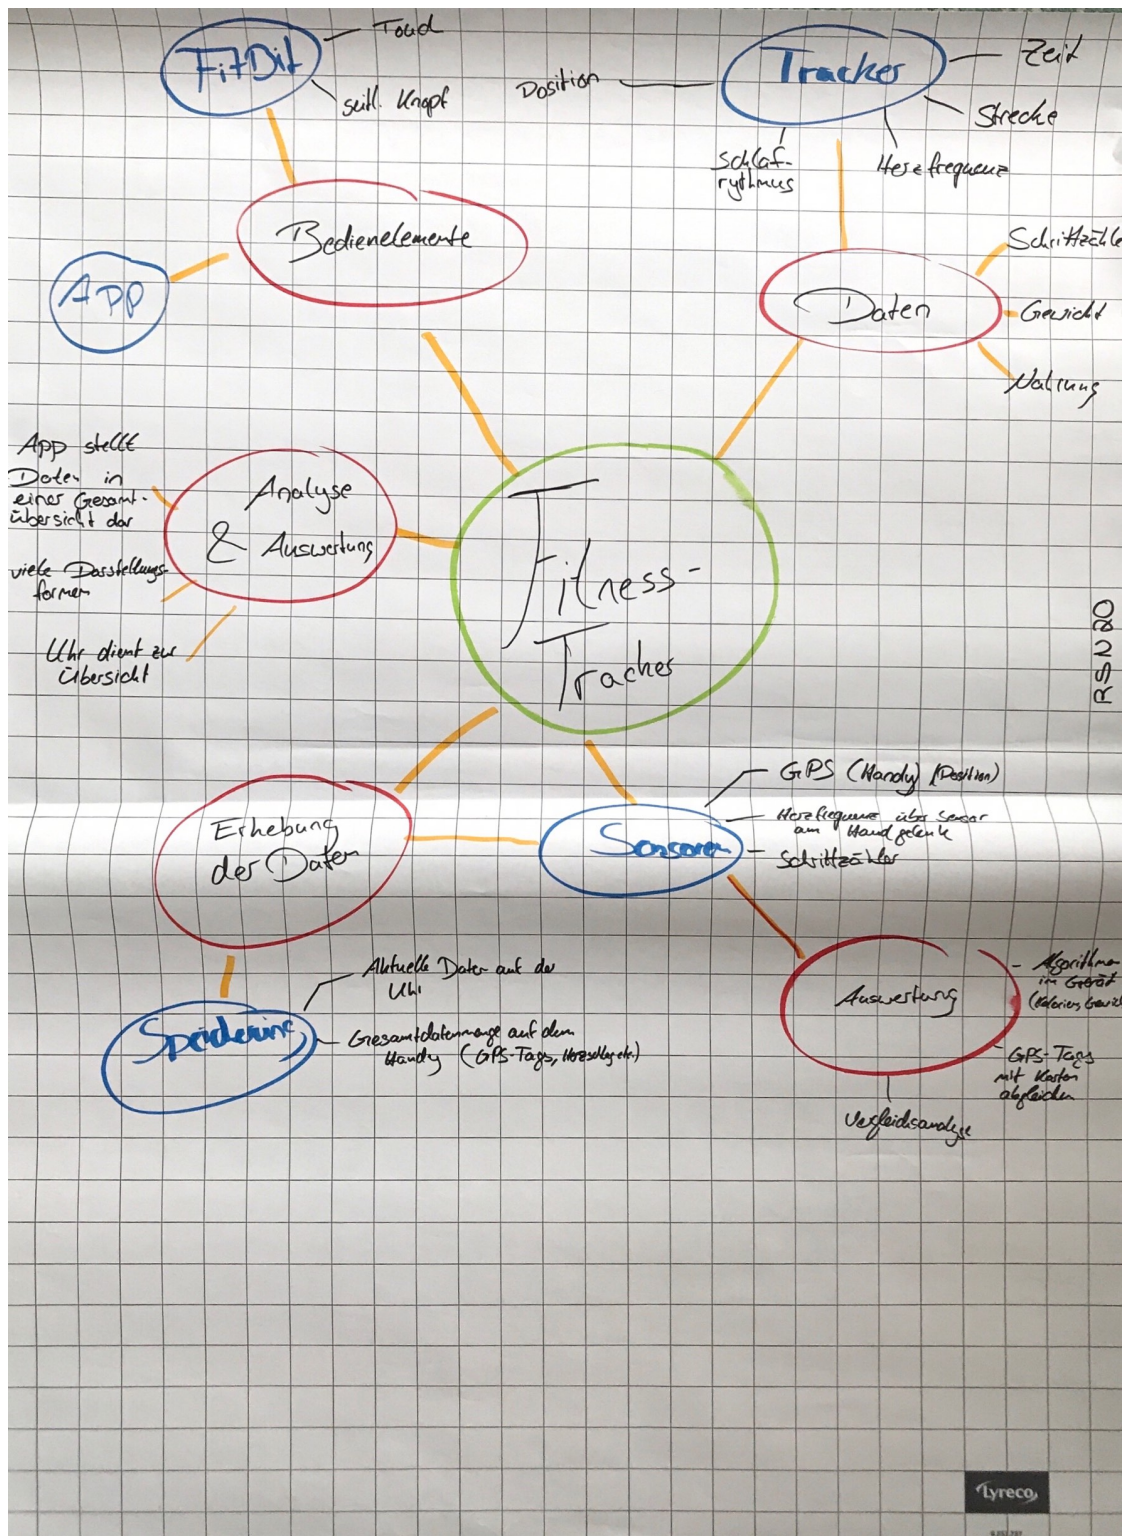 FitBit
Touch
seitl. Knopf
Bedienelemente
App
Position
Tracker
Zeit
Strecke
Herzfrequenz
Schlaf-
rythmus
Daten
Schrittzähle
Gewicht
Nahrung
Analyse
& Auswertung
App stellt
Daten in
einer Gesamt-
übersicht dar
viele Darstellungs-
formen
Uhr dient zur
Übersicht
Fitness-
Tracker
RSN20
Erhebung
der Daten
Sensoren
GPS (Handy) (Position)
Herzfrequenz über Sensor
am Handgelenk
Schrittzähler
Speicherung
Aktuelle Daten auf der
Uhr
Gesamtdatenmenge auf dem
Handy (GPS-Tags, Herzschlag etc.)
Auswertung
Algorithmen
im Gerät
(Kalorien, Gewicht
GPS-Tags
mit Karten
abgleichen
Vergleichsanalyse
Lyreco